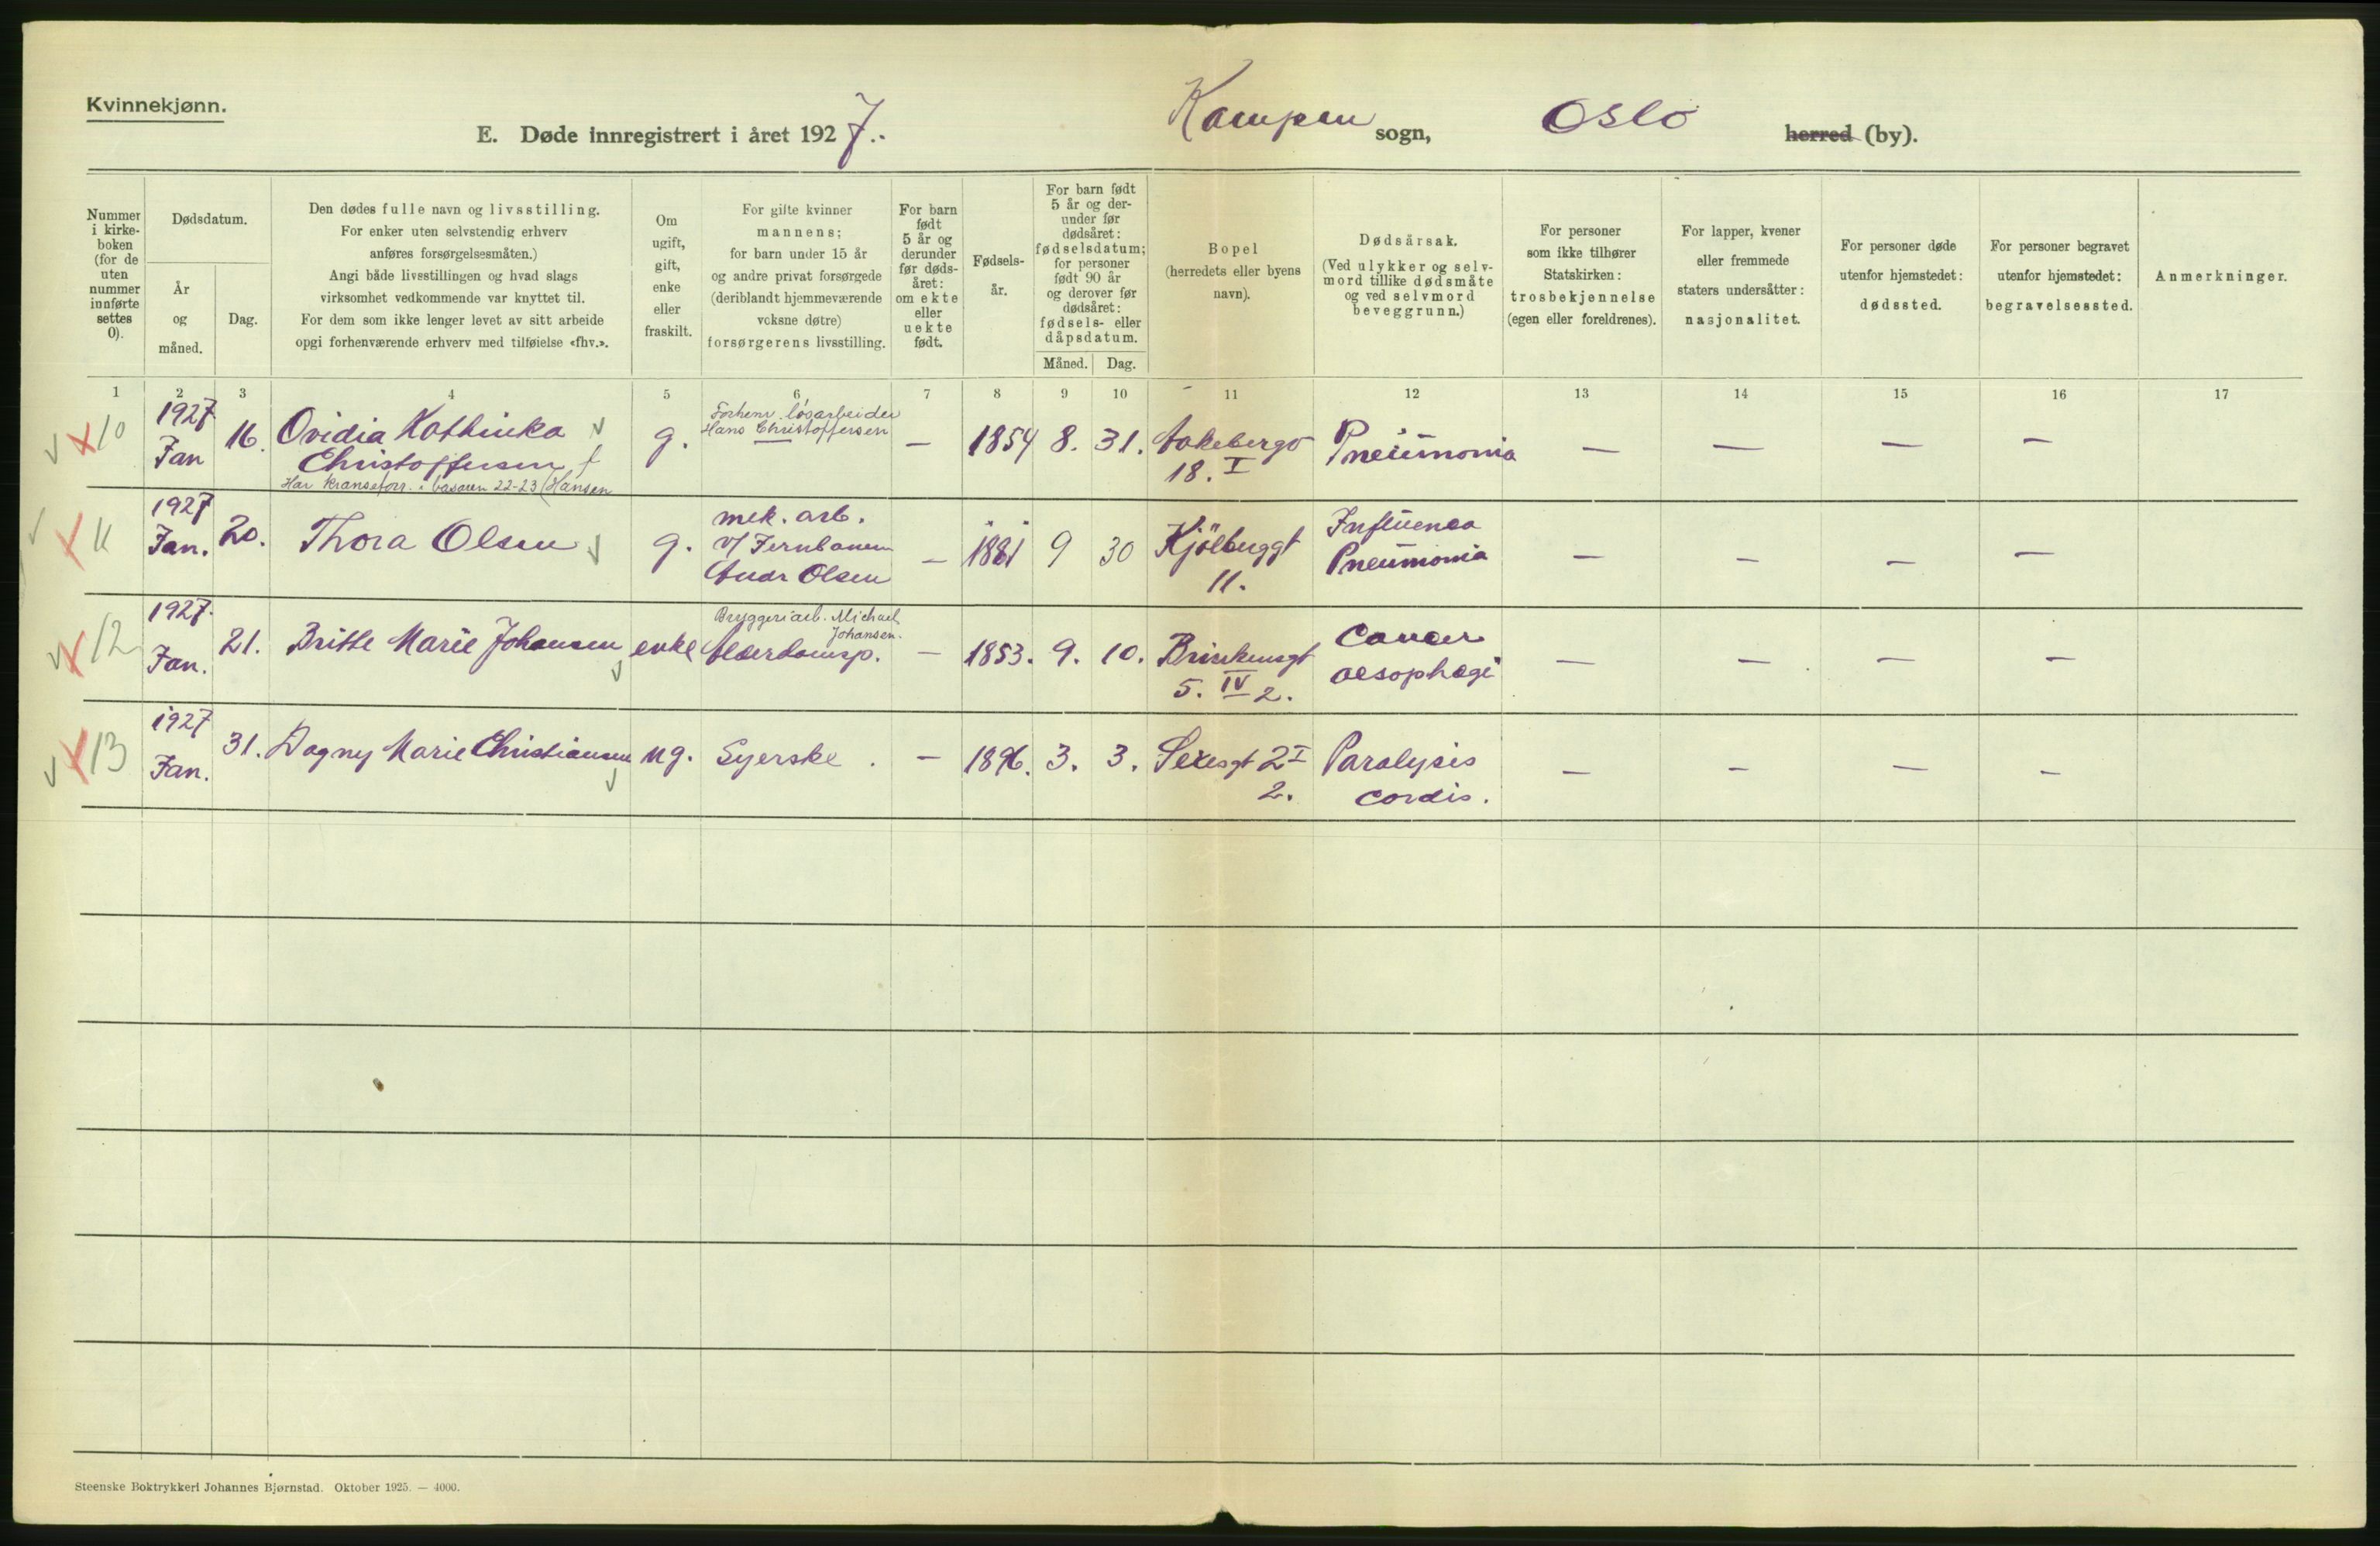 Kvinnekjønn.
E. Døde innregistrert i året 1927. Kampen sogn, Oslo herred (by).
Nummer i kirke-boken (for de uten nummer innførte settes 0).
Dødsdatum.
År og måned.
Dag.
Den dødes fulle navn og livsstilling.
For enker uten selvstendig erhverv
anføres forsørgelsesmåten.)
Angi både livsstillingen og hvad slags
virksomhet vedkommende var knyttet til.
For dem som ikke lenger levet av sitt arbeide
opgi forhenværende erhverv med tilføielse «fhv.».
Om
ugift,
gift,
enke
eller
fraskilt.
For gifte kvinner
mannens;
for barn under 15 år
og andre privat forsørgede
(deriblandt hjemmeværende
voksne døtre)
forsørgerens livsstilling.
For barn
født
5 år og
derunder
før døds-
året:
om ekte
eller
uekte
født.
Fødsels-
år.
For barn født
5 år og der-
under før
dødsåret:
fødselsdatum;
for personer
født 90 år
og derover før
dødsåret:
fødsels- eller
dåpsdatum.
Måned. Dag.
Bopel
(herredets eller byens
navn).
Dødsårsak.
(Ved ulykker og selv-
mord tillike dødsmåte
og ved selvmord
beveggrunn.)
For personer
som ikke tilhører
Statskirken:
trosbekjennelse
(egen eller foreldrenes).
For lapper, kvener
eller fremmede
staters undersåtter:
nasjonalitet.
For personer døde
utenfor hjemstedet:
dødssted.
For personer begravet
utenfor hjemstedet:
begravelsessted.
Anmerkninger.
1 2 3 4 5 6 7 8 9 10 11 12 13 14 15 16 17
10 1927 Jan 16. Ovidia Kathinka
Christoffersen f
Har kranseforr. i basaren 22-23 (Hansen
g. Forhenv. løsarbeider
Hans Christoffersen
— 1854 8. 31. Aakebergv
18. I
Pneumonia — — — —
11 1927 Jan. 20. Thora Olsen g. mek. arb.
v/ Jernbanen
Andr Olsen
— 1881 9 30 Kjølberggt
11.
Influenca
Pneumonia — — — —
12 1927. Jan. 21. Britte Marie Johansen enke Bryggeriarb. Michael
Johansen.
Alderdomsp. — 1853. 9. 10. Brinkensgt
5. IV 2.
Cancer
oesophagi — — — —
13 1927 Jan. 31. Dagny Marie Christiansen ug. Syerske. — 1896. 3. 3. Sexesgt 2 I
2.
Paralysis
cordis. — — — —
Steenske Boktrykkeri Johannes Bjørnstad. Oktober 1925. — 4000.